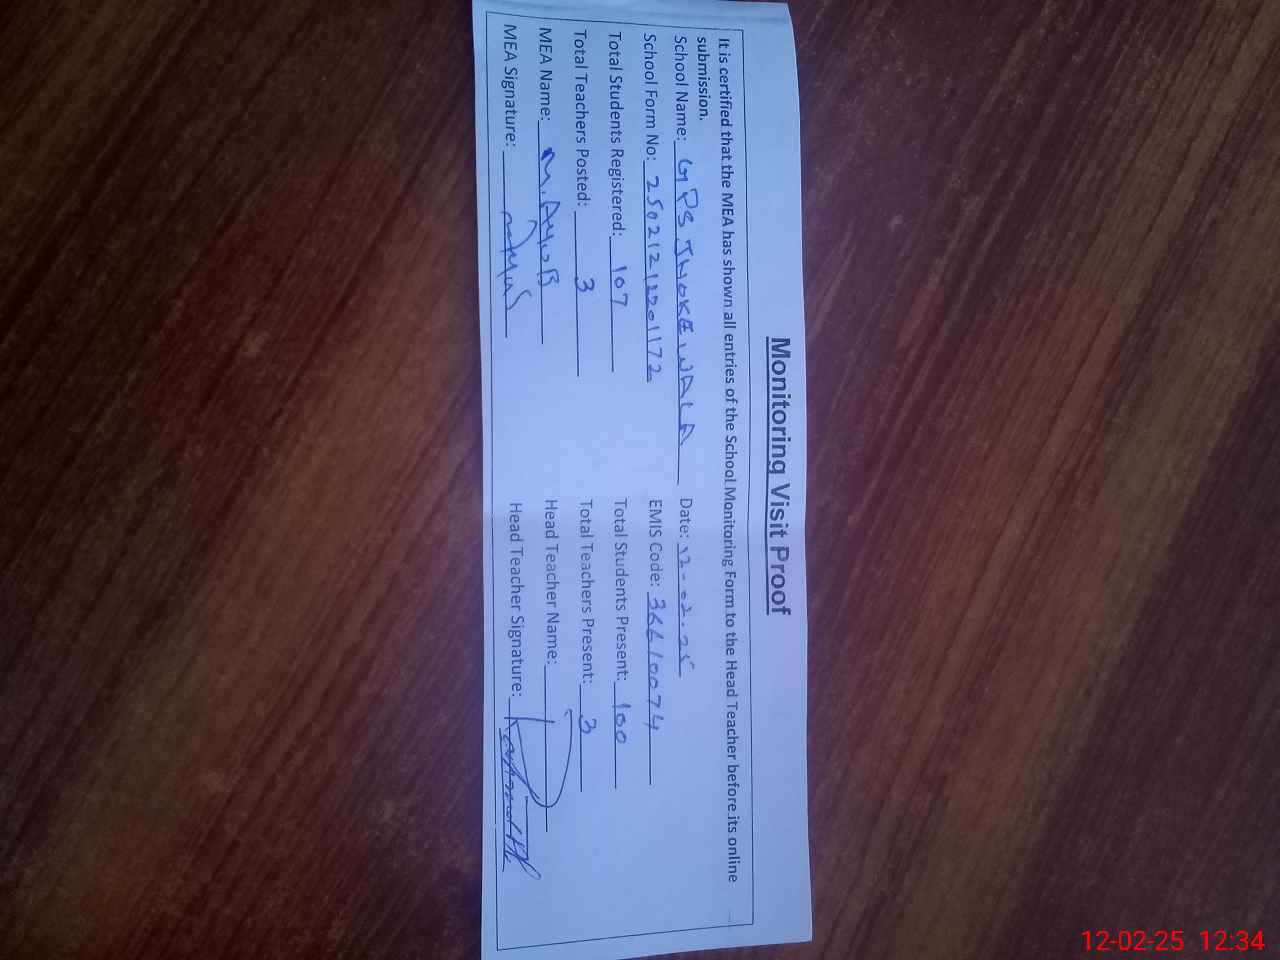 Monitoring Visit Proof
It is certified that the MEA has shown all entries of the School Monitoring Form to the Head Teacher before its online
submission.
School Name: GPS JHOKE WALA Date: 12-02-25
School Form No: 25021212201172 EMIS Code: 36610074
Total Students Registered: 107 Total Students Present: 100
Total Teachers Posted: 3 Total Teachers Present: 3
MEA Name: M. AYUB Head Teacher Name:
MEA Signature: Head Teacher Signature:
12-02-25 12:34